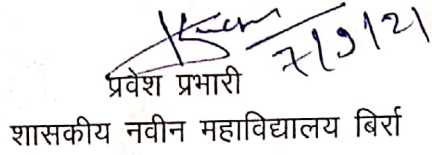 7/9/21
प्रवेश प्रभारी
शासकीय नवीन महाविद्यालय बिर्रा